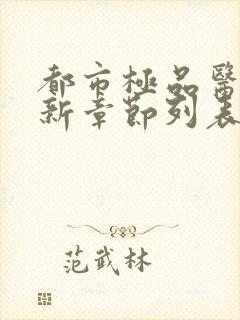 都市極品醫
新章節列表
范武林